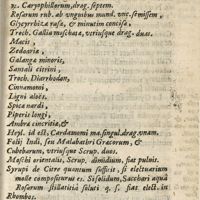 ℞. Caryophillorum, drag. septem.
Rosarum rub. ab vnguibus mund. vnc. semissem,
Glycyrrhizæ rasæ, & minutim concisæ,
Troch. Galliæ moschatæ, vtriusque drag. duas.
Macis,
Zedoariæ,
Galangæ minoris,
Santali citrini
Troch. Diarrhodon,
Cinnamomi,
Ligni aloës.
Spicæ nardi,
Piperis longi,
Ambræ cincritiæ, &
Heyl. id est, Cardamomi ma. singul. drag. vnam.
Folij Indi, seu Malabathri Græcorum, &
Cubebarum, vtriusque Scrup. duos.
Moschi orientalis, Scrup. dimidium, fiat puluis.
Syrupi de Citro quantum sufficit, si electuarium
molle componitur: si Solidum, Sacchari aquâ
Rosarum stillatitiâ soluti q. s. fiat elect. in
Rhombos.